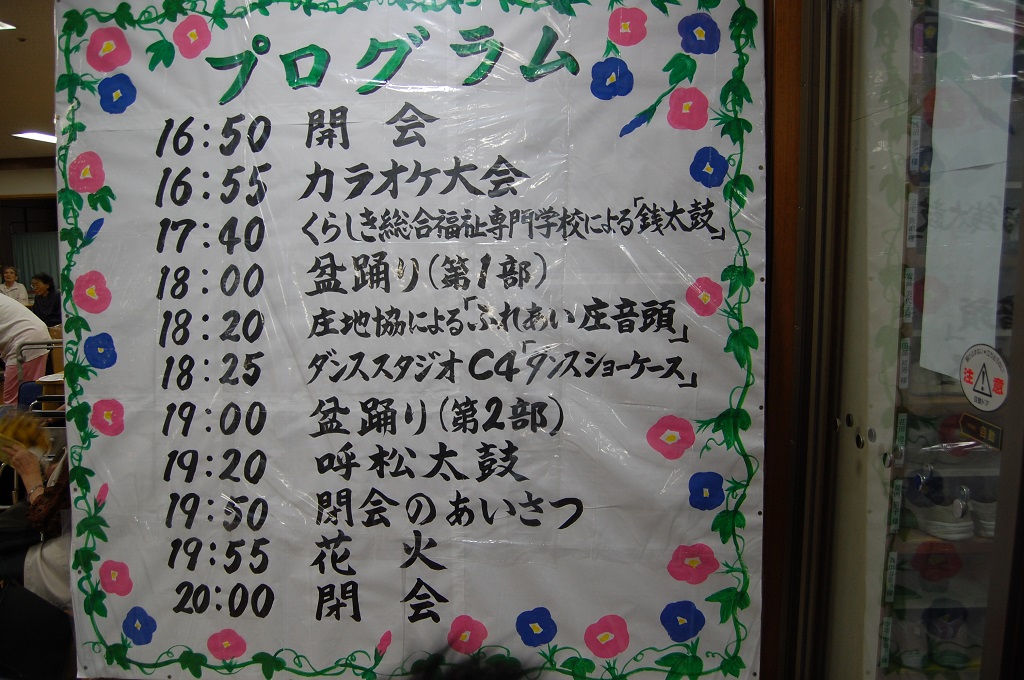 プログラム
16:50 開会
16:55 カラオケ大会
17:40 くらしき総合福祉専門学校による「銭太鼓」
18:00 盆踊り(第1部)
18:20 庄地協による「ふれあい庄音頭」
18:25 ダンススタジオC4「ダンスショーケース」
19:00 盆踊り(第2部)
19:20 呼松太鼓
19:50 閉会のあいさつ
19:55 花火
20:00 閉会
注意